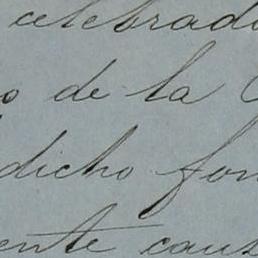 celebrado
o de la
dicho fon
ente caus